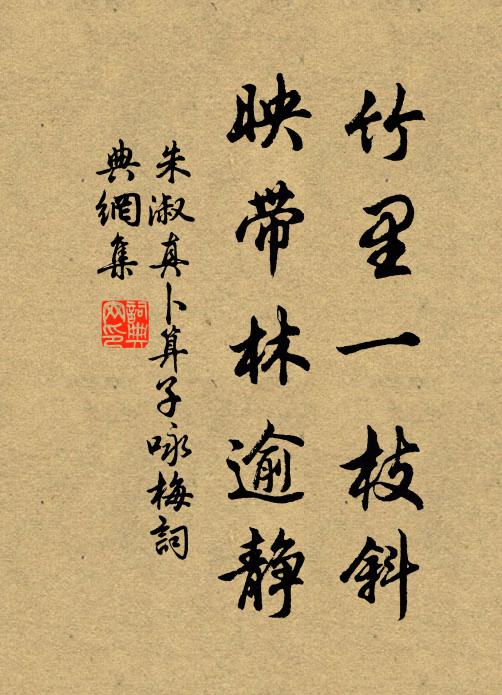 竹里一枝斜
映带林逾静
朱淑真卜算子咏梅詞
典網集
詞典網印